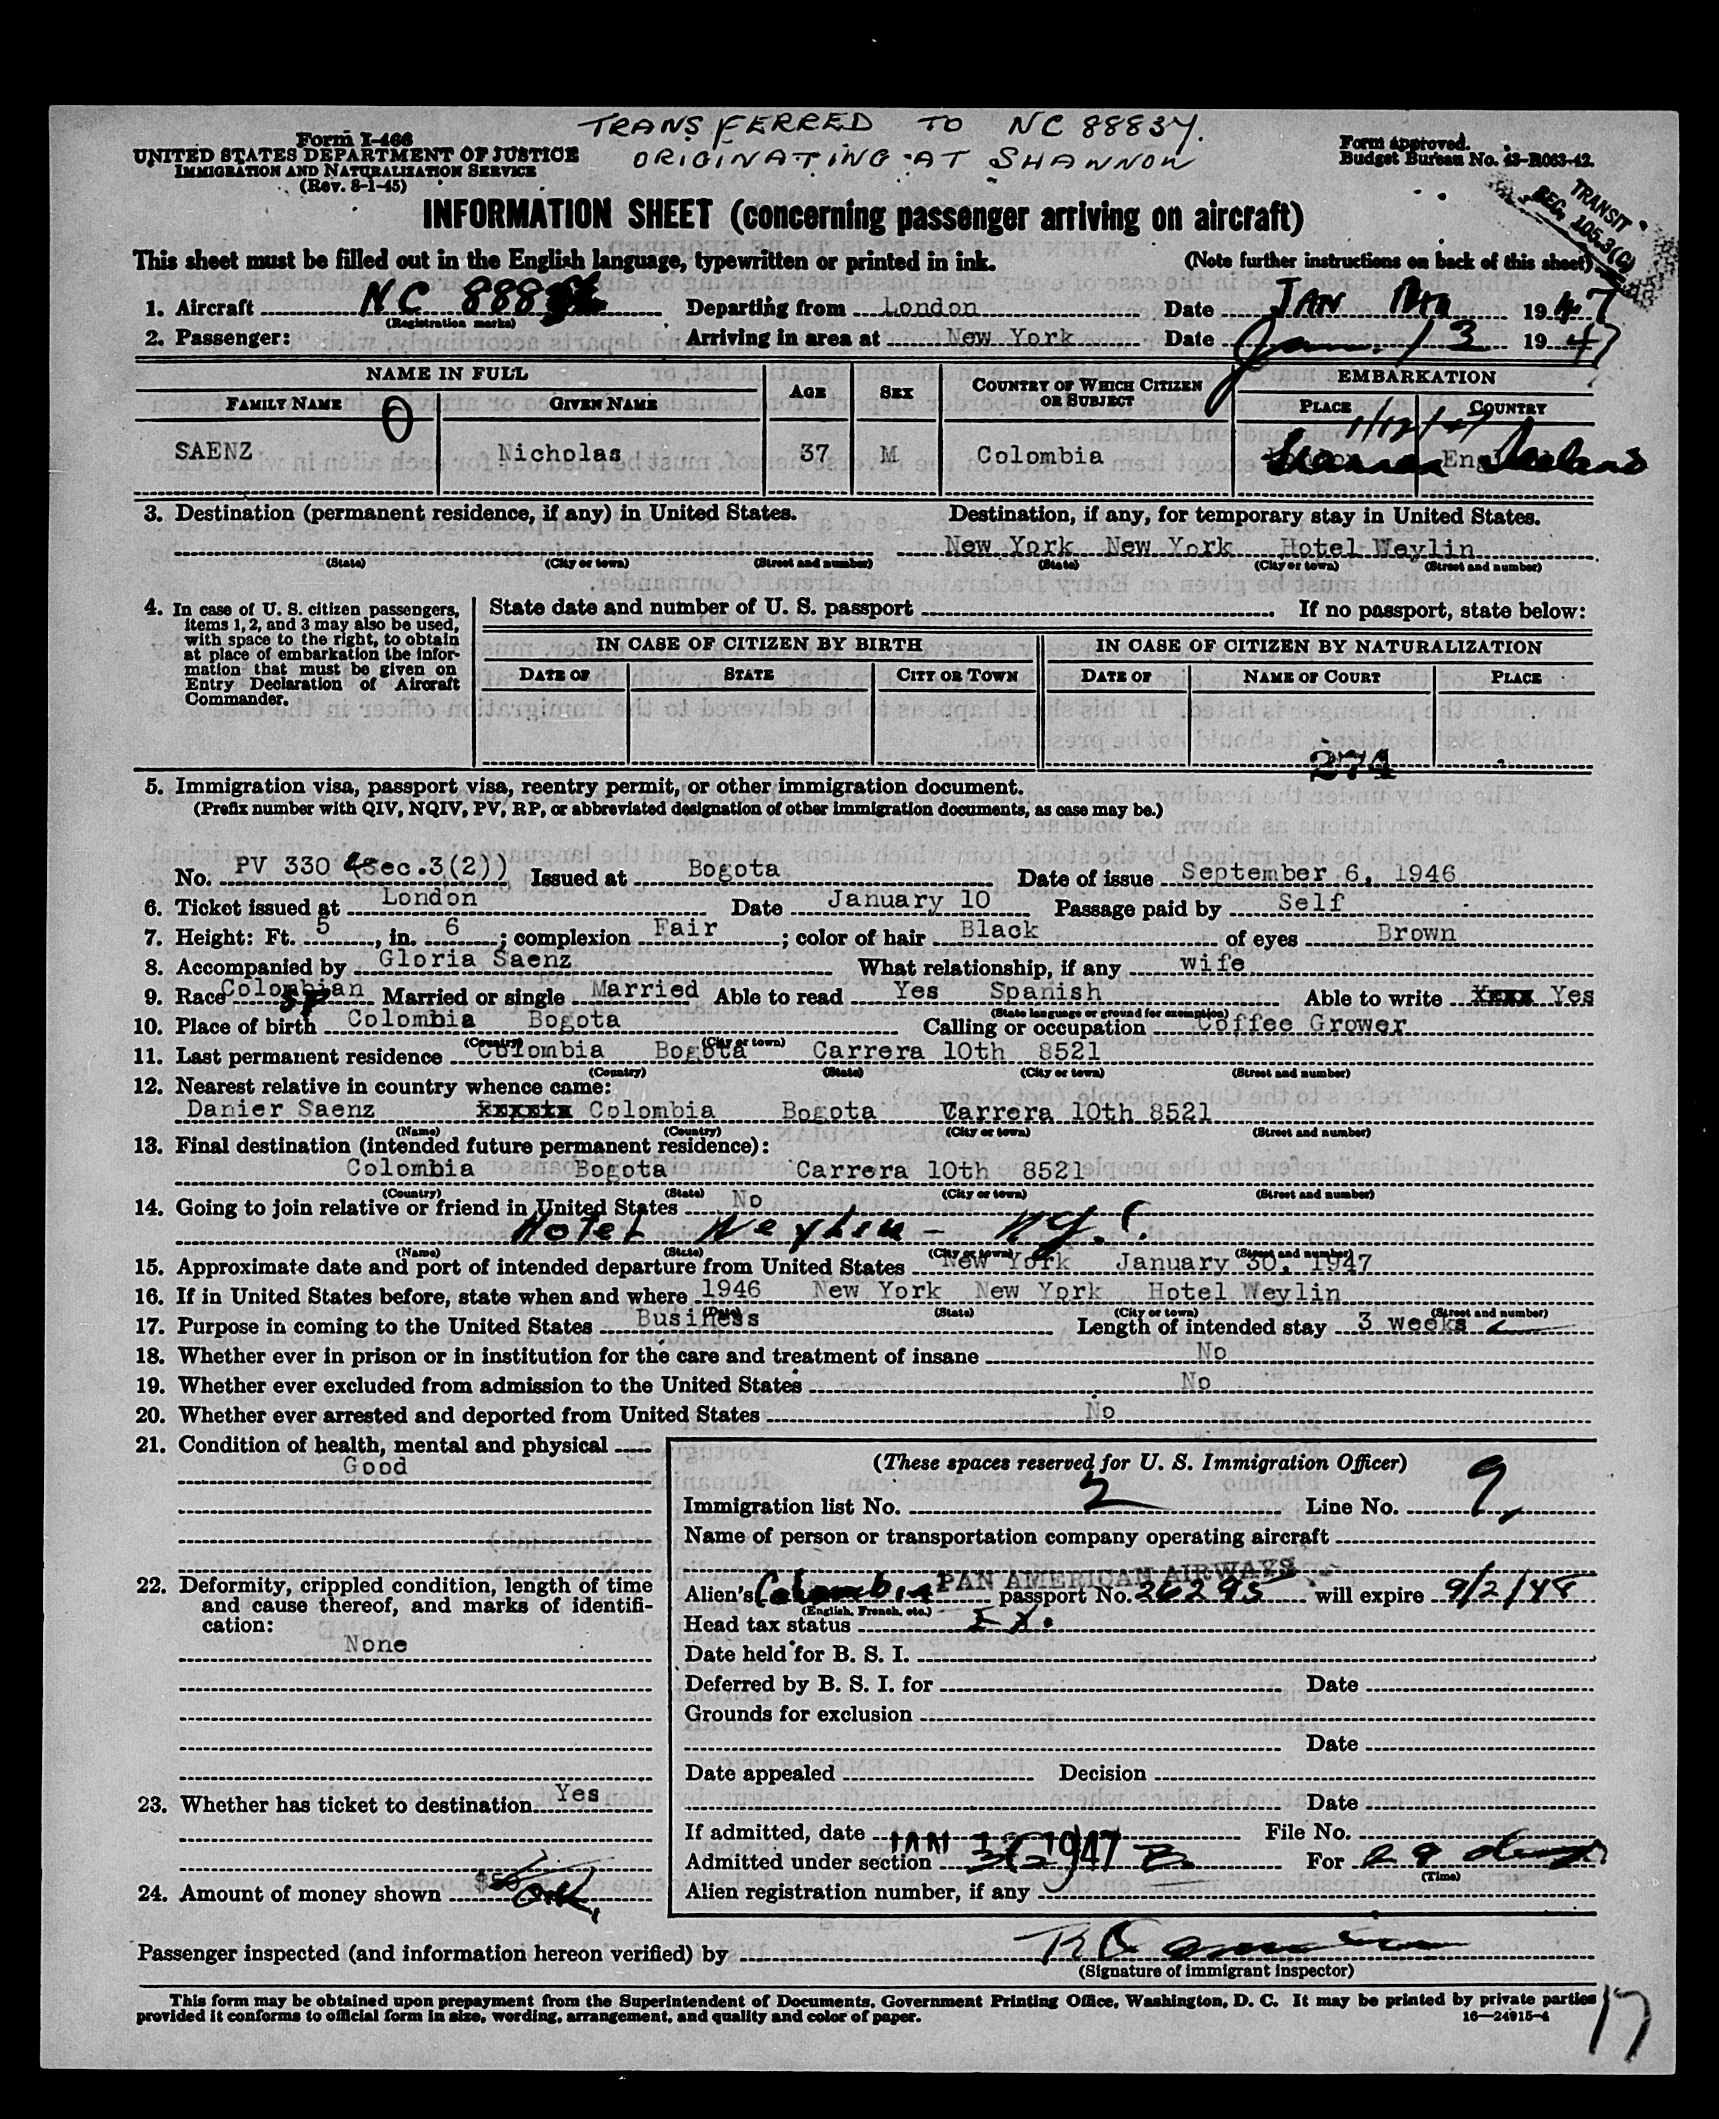 TRANSFERRED TO NC 88837.
ORIGINATING AT SHANNON
Form I-466
UNITED STATES DEPARTMENT OF JUSTICE
IMMIGRATION AND NATURALIZATION SERVICE
(Rev. 8-1-45)
Form approved.
Budget Bureau No. 43-R063-42.
TRANSIT
SEC. 105.3(C)
INFORMATION SHEET (concerning passenger arriving on aircraft)
This sheet must be filled out in the English language, typewritten or printed in ink. (Note further instructions on back of this sheet)
1. Aircraft NC 888 Departing from London Date JAN 1947
(Registration marks)
2. Passenger: Arriving in area at New York Date Jan. 13 1947
NAME IN FULL AGE SEX COUNTRY OF WHICH CITIZEN OR SUBJECT EMBARKATION
FAMILY NAME GIVEN NAME PLACE COUNTRY
1/12/47
SAENZ Nicholas 37 M Colombia Shannon Ireland
3. Destination (permanent residence, if any) in United States. Destination, if any, for temporary stay in United States.
New York New York Hotel Weylin
(State) (City or town) (Street and number) (State) (City or town) (Street and number)
4. In case of U. S. citizen passengers, items 1, 2, and 3 may also be used, with space to the right, to obtain at place of embarkation the information that must be given on Entry Declaration of Aircraft Commander.
State date and number of U. S. passport If no passport, state below:
IN CASE OF CITIZEN BY BIRTH IN CASE OF CITIZEN BY NATURALIZATION
DATE OF STATE CITY OR TOWN DATE OF NAME OF COURT PLACE
274
5. Immigration visa, passport visa, reentry permit, or other immigration document.
(Prefix number with QIV, NQIV, PV, RP, or abbreviated designation of other immigration documents, as case may be.)
No. PV 330 (Sec.3(2)) Issued at Bogota Date of issue September 6, 1946
6. Ticket issued at London Date January 10 Passage paid by Self
7. Height: Ft. 5, in. 6; complexion Fair; color of hair Black of eyes Brown
8. Accompanied by Gloria Saenz What relationship, if any wife
9. Race Colombian SP Married or single Married Able to read Yes Spanish Able to write Yes
(State language or ground for exemption)
10. Place of birth Colombia Bogota Calling or occupation Coffee Grower
(Country) (City or town)
11. Last permanent residence Colombia Bogota Carrera 10th 8521
(Country) (State) (City or town) (Street and number)
12. Nearest relative in country whence came:
Danier Saenz Colombia Bogota Carrera 10th 8521
(Name) (Country) (City or town) (Street and number)
13. Final destination (intended future permanent residence):
Colombia Bogota Carrera 10th 8521
(Country) (State) (City or town) (Street and number)
14. Going to join relative or friend in United States No
Hotel Weylin - NY.C.
(Name) (State) (City or town) (Street and number)
15. Approximate date and port of intended departure from United States New York January 30, 1947
16. If in United States before, state when and where 1946 New York New York Hotel Weylin
(Date) (State) (City or town) (Street and number)
17. Purpose in coming to the United States Business Length of intended stay 3 weeks
18. Whether ever in prison or in institution for the care and treatment of insane No
19. Whether ever excluded from admission to the United States No
20. Whether ever arrested and deported from United States No
21. Condition of health, mental and physical
Good
22. Deformity, crippled condition, length of time and cause thereof, and marks of identification:
None
23. Whether has ticket to destination Yes
24. Amount of money shown $50 OK
(These spaces reserved for U. S. Immigration Officer)
Immigration list No. 2 Line No. 9
Name of person or transportation company operating aircraft
PAN AMERICAN AIRWAYS
Alien's Colombia passport No. 26295 will expire 9/2/48
(English, French, etc.)
Head tax status EX.
Date held for B. S. I.
Deferred by B. S. I. for Date
Grounds for exclusion
Date
Date appealed Decision
Date
If admitted, date JAN 1947 File No.
Admitted under section 3(2) B For 29 days
(Time)
Alien registration number, if any
Passenger inspected (and information hereon verified) by
(Signature of immigrant inspector)
This form may be obtained upon prepayment from the Superintendent of Documents, Government Printing Office, Washington, D. C. It may be printed by private parties
provided it conforms to official form in size, wording, arrangement, and quality and color of paper. 16—24915-4
17